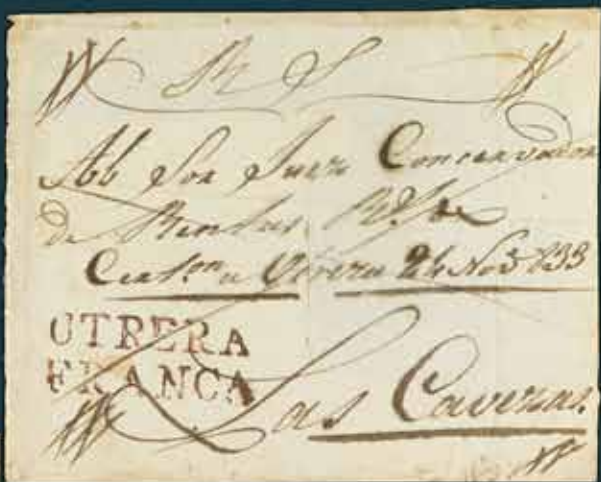 R S
Al Sor Juez Concervador
de Rentas Rs de
Certon a Utrera 24 Nov 833
UTRERA
FRANCA
Las Cavezas.